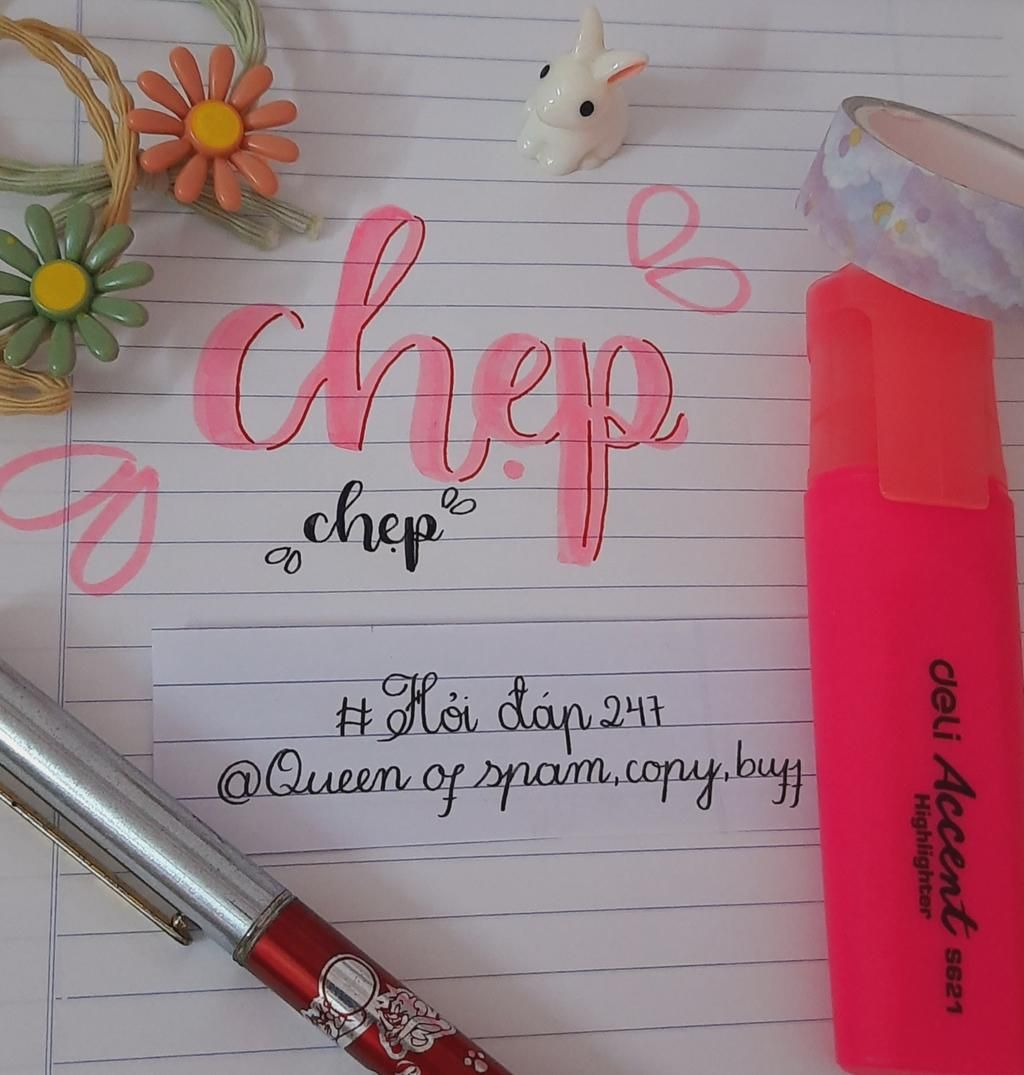 chẹp
chẹp
#Hỏi đáp 247
@Queen of spam,copy,buff
deli Accent S621
Highlighter